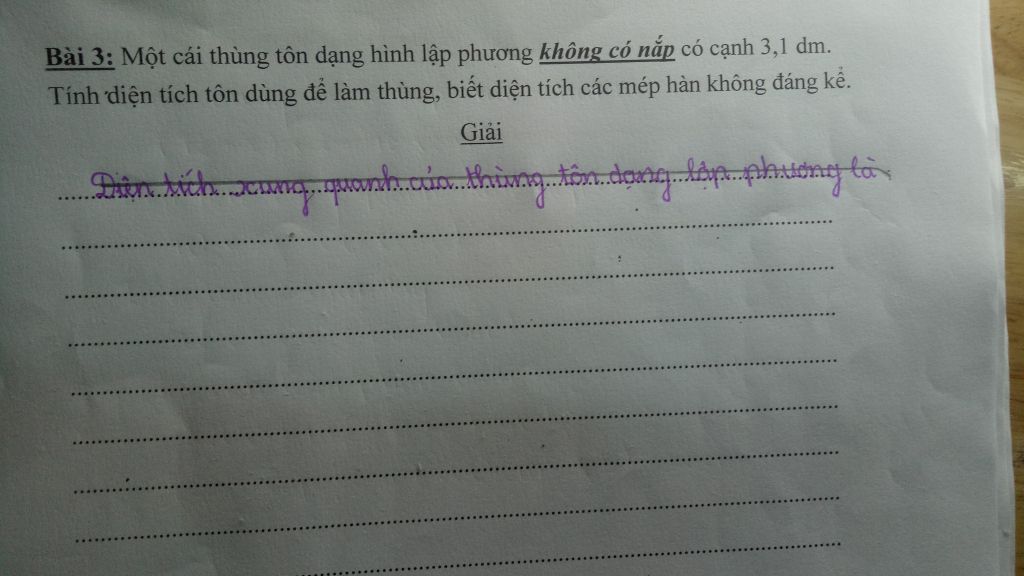 Bài 3: Một cái thùng tôn dạng hình lập phương không có nắp có cạnh 3,1 dm.
Tính diện tích tôn dùng để làm thùng, biết diện tích các mép hàn không đáng kể.
Giải
Diện tích xung quanh của thùng tôn dạng lập phương là